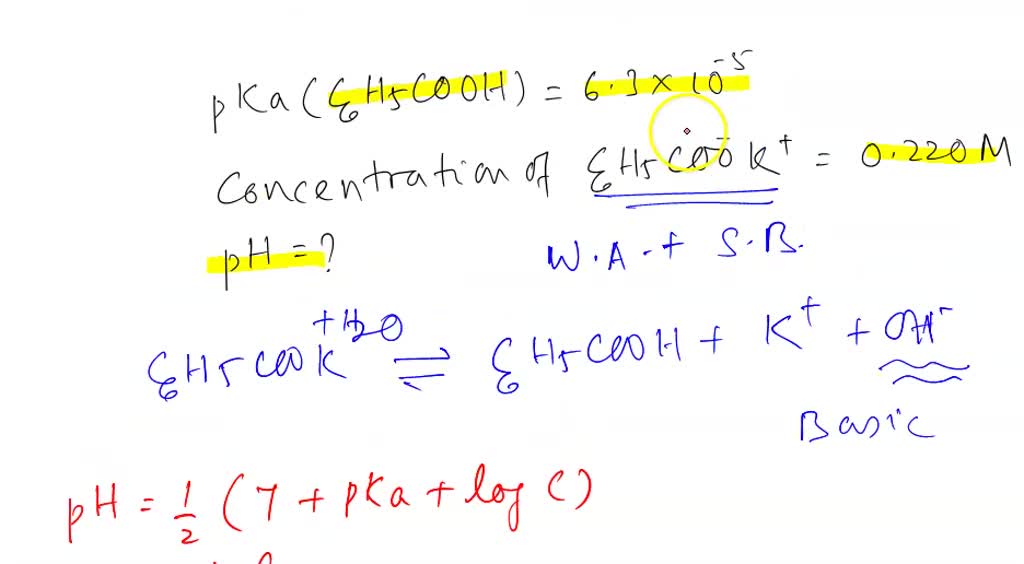 pKa (C6H5COOH) = 6.3 × 10⁻⁵
Concentration of C6H5COO⁻K⁺ = 0.220 M
pH = ?
W.A. + S.B.
C6H5COOK + H2O ⇌ C6H5COOH + K⁺ + OH⁻
Basic
pH = 1/2 (7 + pKa + log C)